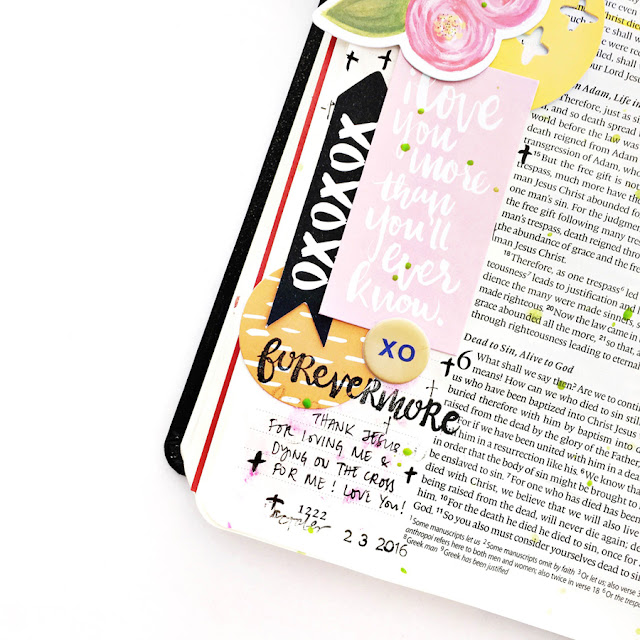 I love
you
more
than
you'll
ever
know.
OXOXOX
XO
forevermore
THANK JESUS
FOR LOVING ME &
DYING ON THE CROSS
FOR ME! LOVE YOU!
1222
2 3 2016
Christ died
shall
were
shall
our Lord Jesu
Adam, Life
Therefore, just as
and so death spread
world before the law was
death reigned from Adam
transgression of Adam,
15 But the free gift is
trespass, much more have
man Jesus Christ abounded
one man's sin. For the
the free gift following many
man's trespass, death reigned
the abundance of grace and the
man Jesus Christ.
18 Therefore, as one trespass led
teousness leads to justification and
dience the many were made sinners,
made righteous. 20 Now the law came
grace abounded all the more, 21 so that,
through righteousness leading to
Dead to Sin, Alive to God
6 What shall we say then? Are we to
means! How can we who died to sin
us who have been baptized into Christ
buried therefore with him by baptism into
raised from the dead by the glory of the
For if we have been united with him in a
him in a resurrection like his. 6 We know that
in order that the body of sin might be brought to
be enslaved to sin. 7 For one who has died has been
died with Christ, we believe that we will also live
being raised from the dead, will never die again;
him. 10 For the death he died he died to sin, once for
God. 11 So you also must consider yourselves dead to sin
1 Some manuscripts let us 2 Some manuscripts omit by faith 3 Or let us; also verse
anthropoi refers here to both men and women; also twice in verse 18 6 Or the
8 Greek man 9 Greek has been justified